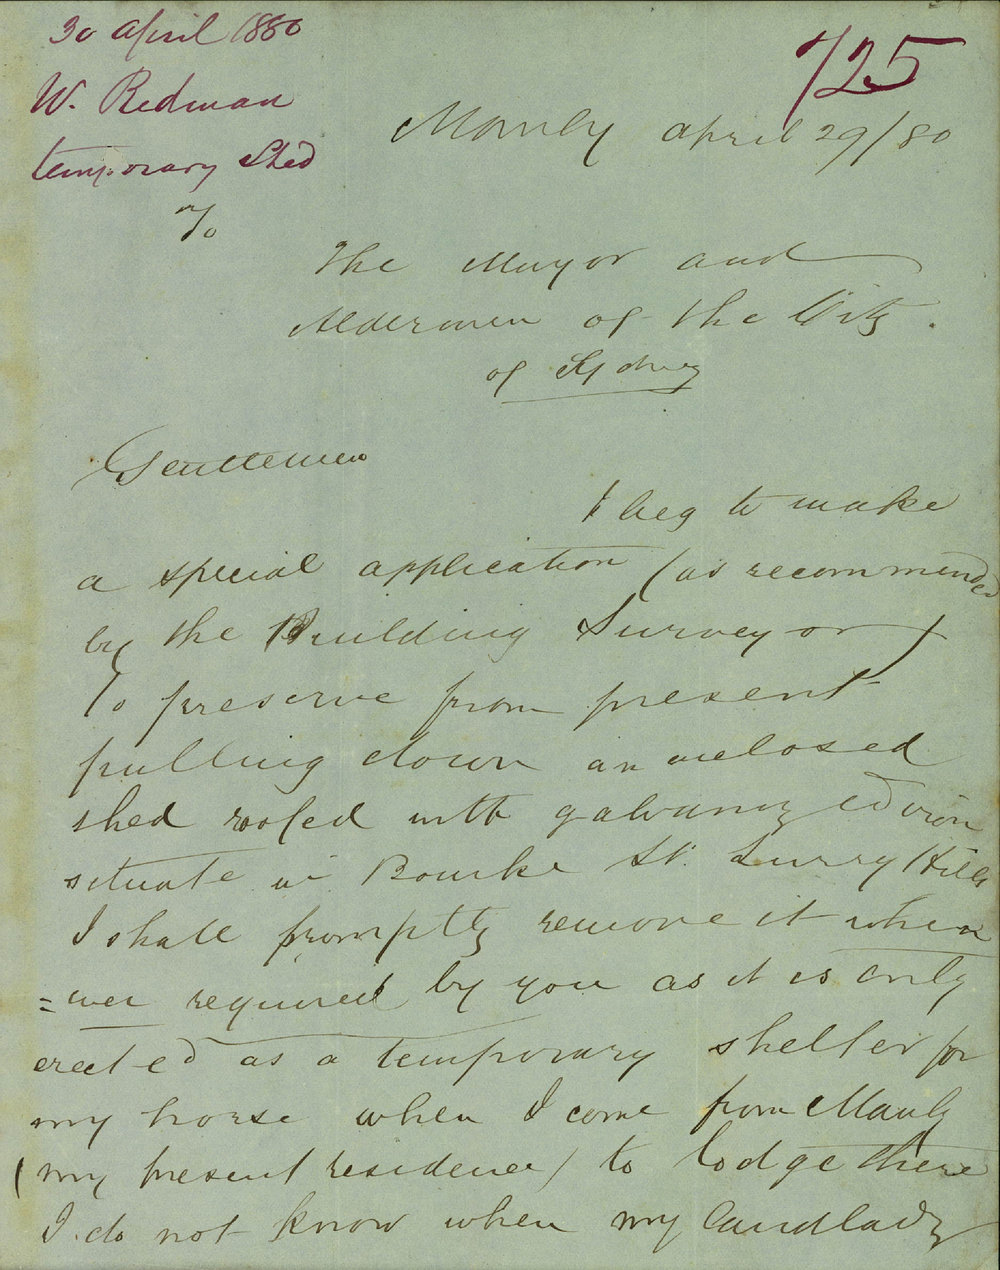 30 April 1880
W. Redman
temporary Shed
725
Manly April 29/80
To
The Mayor and
Aldermen of the City
of Sydney
Gentlemen
I beg to make
a special application (as recommended
by the Building Surveyor)
To preserve from present
pulling down an inclosed
shed roofed with galvanized iron
situate in Bourke St. Surry Hills
I shall promptly remove it when
=ever required by you as it is only
erected as a temporary shelter for
my horse when I come from Manly
(my present residence) to lodge there
I do not know when my landlady